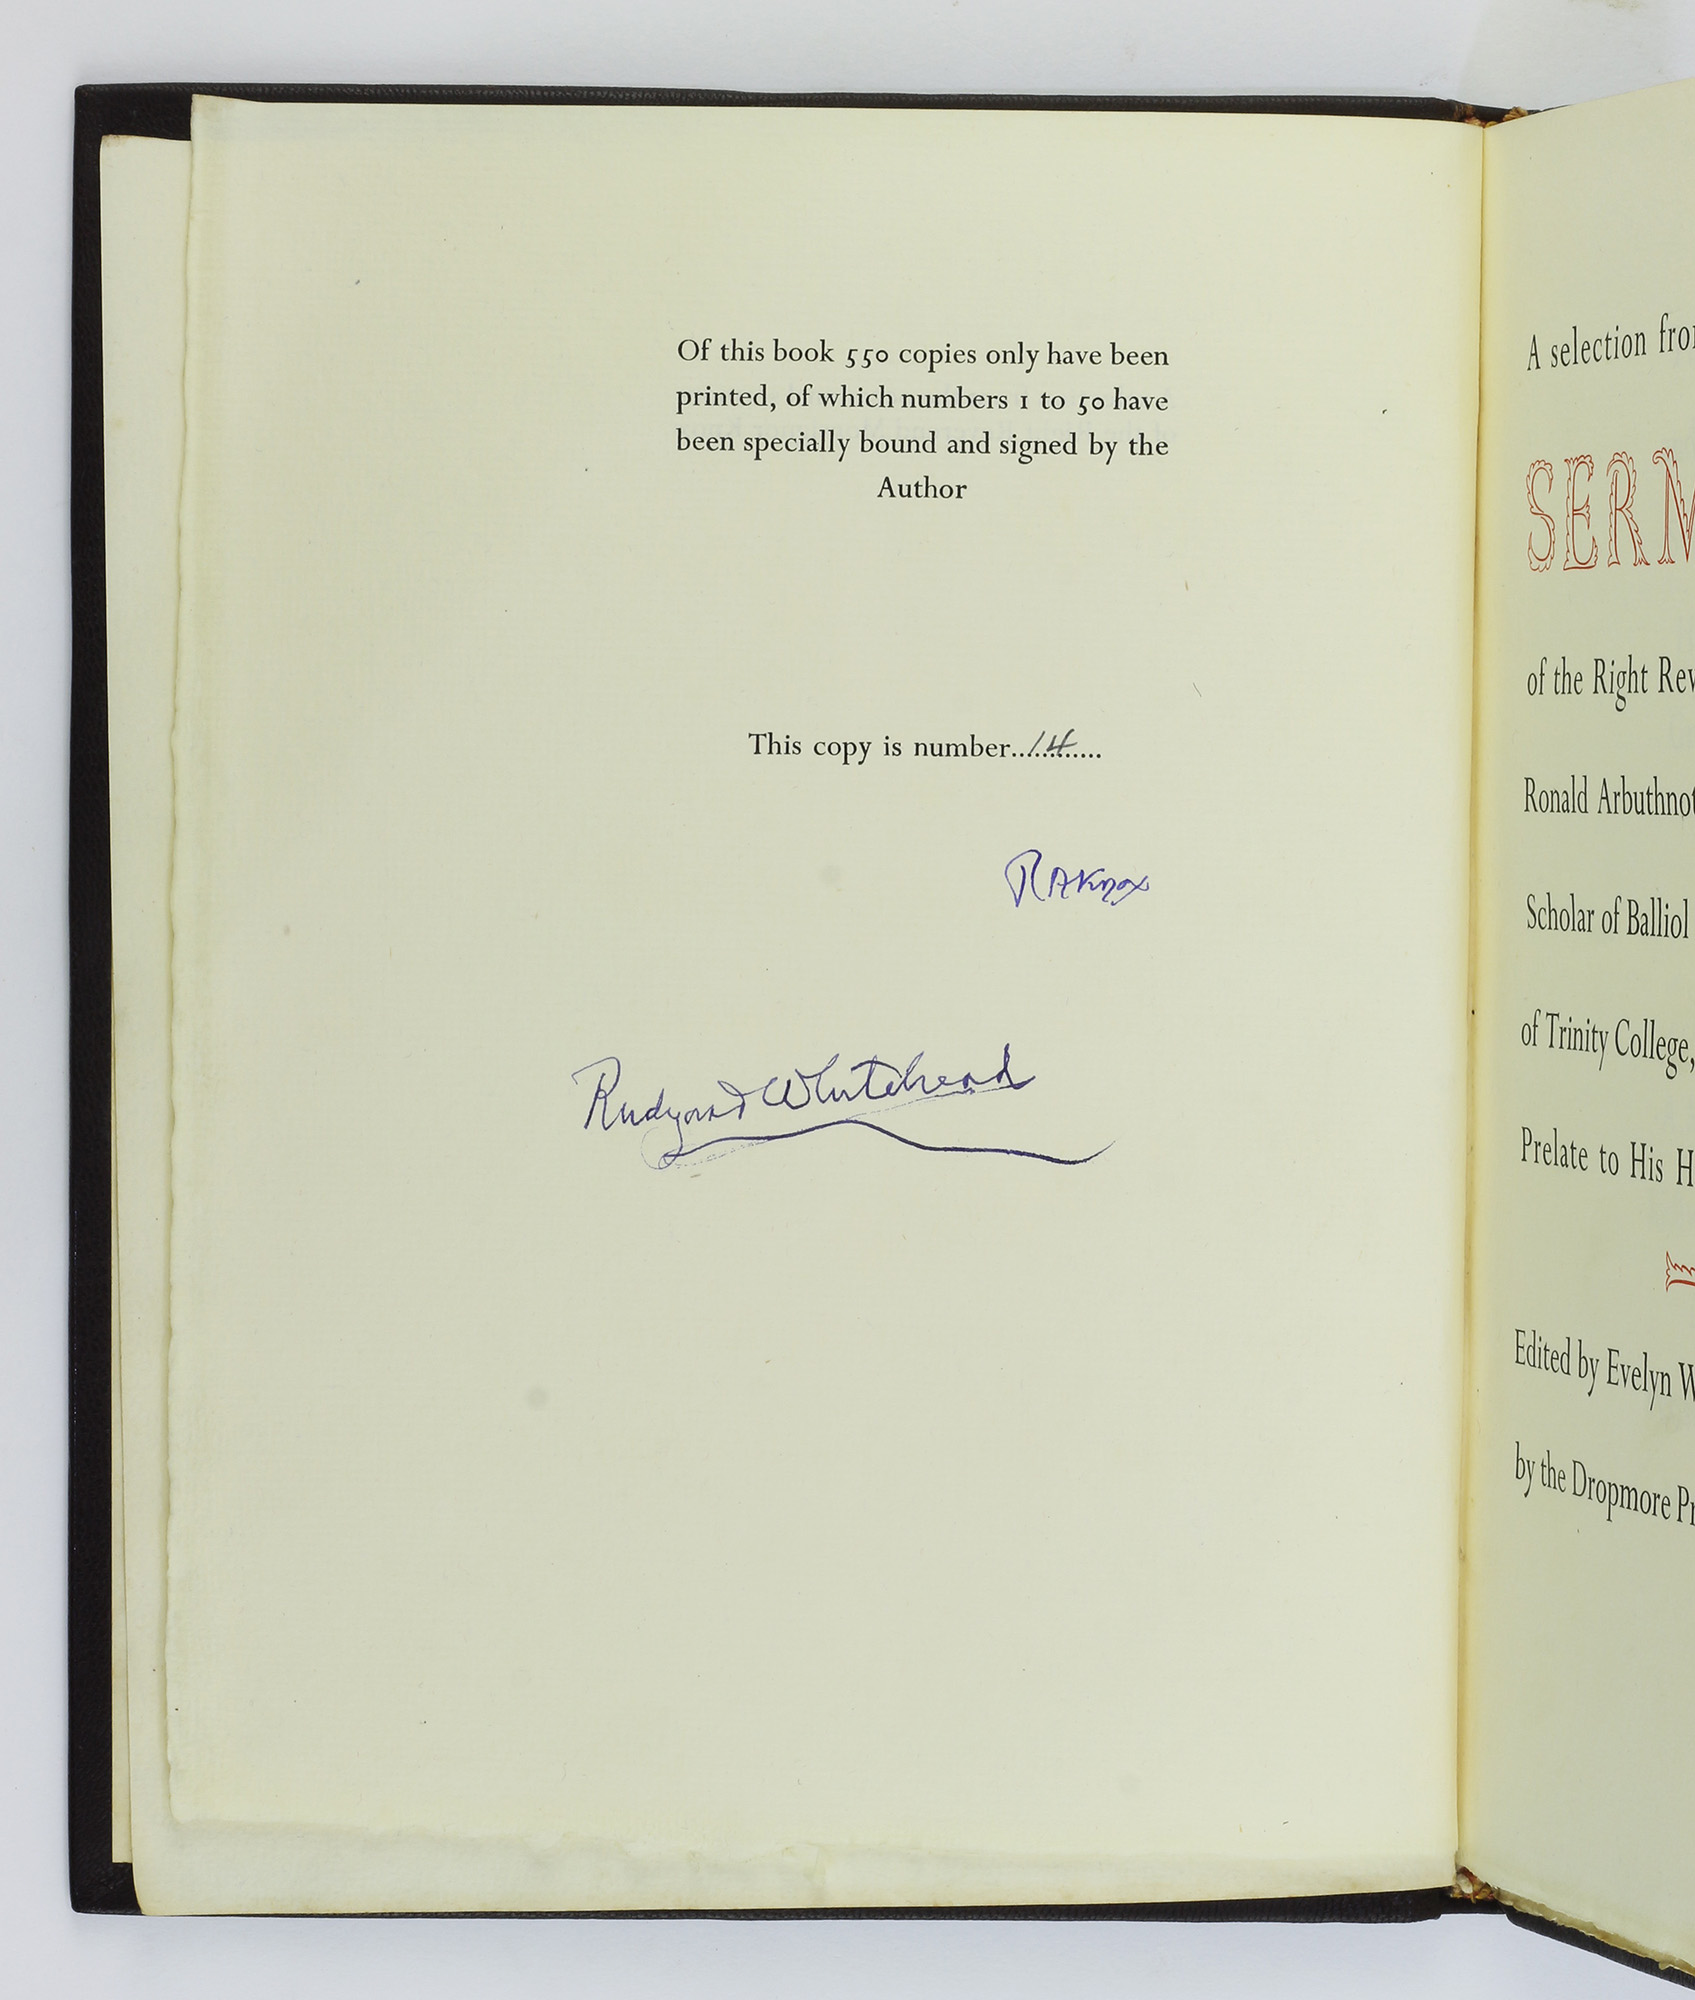 Of this book 550 copies only have been
printed, of which numbers 1 to 50 have
been specially bound and signed by the
Author
This copy is number...14.......
RAKnox
Rudyard Whitehead
A selection fro
SERM
of the Right Rev
Ronald Arbuthnot
Scholar of Balliol
of Trinity College,
Prelate to His H
Edited by Evelyn W
by the Dropmore Pr